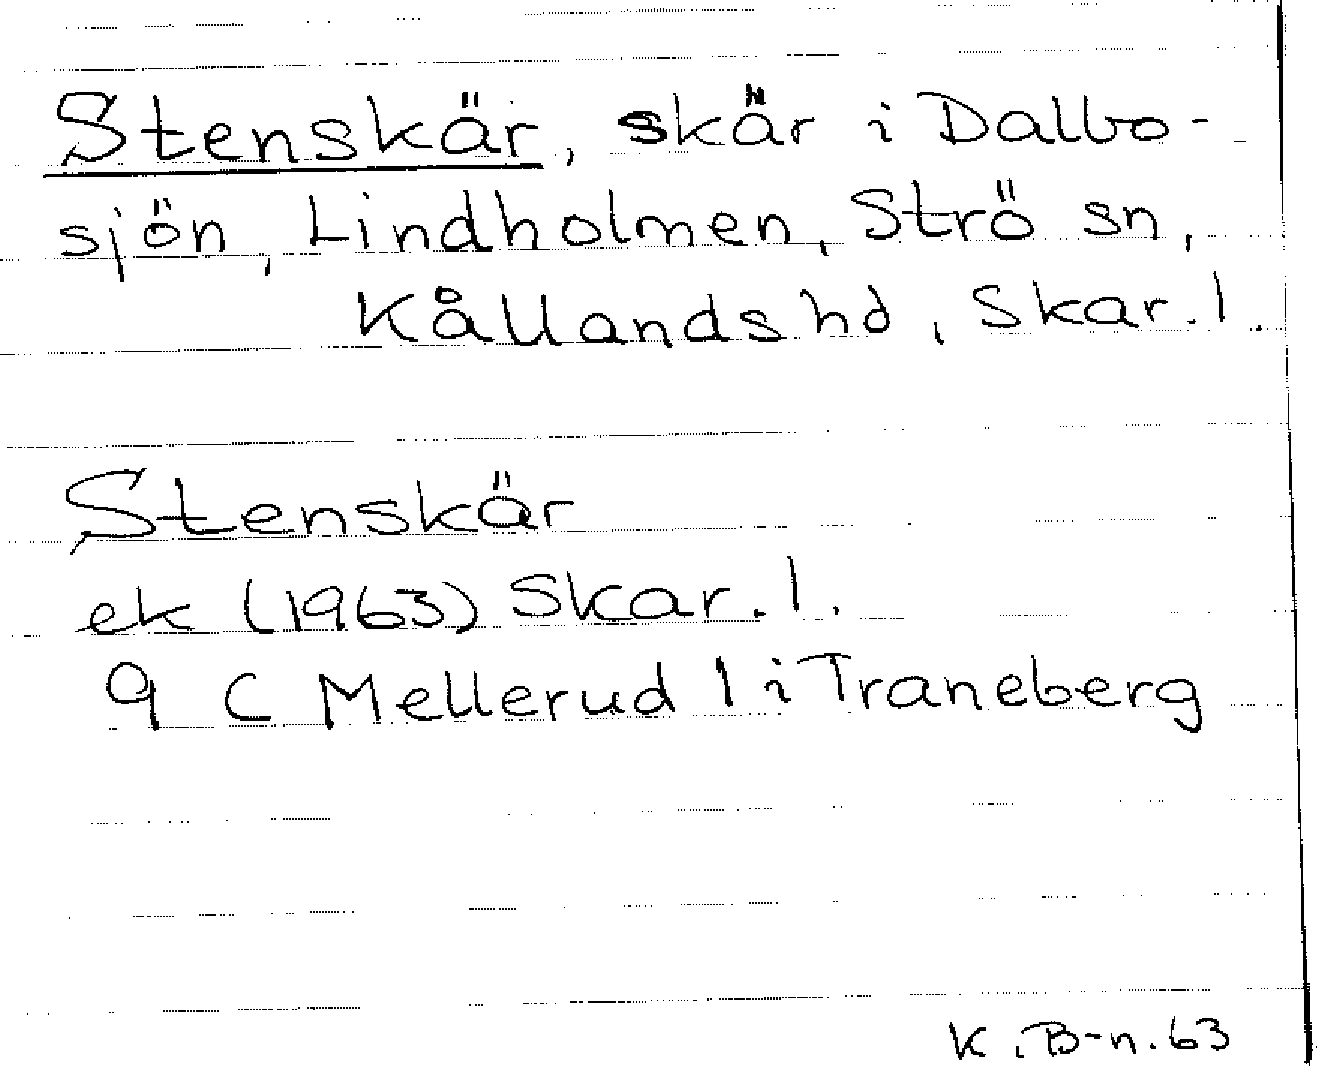 Stenskär, skär i Dalbo-
sjön, Lindholmen, Strö sn,
Kållands hd, Skar. l.
Stenskär
ek (1963) Skar. l.
9 C Mellerud l i Traneberg
K. B-n. 63